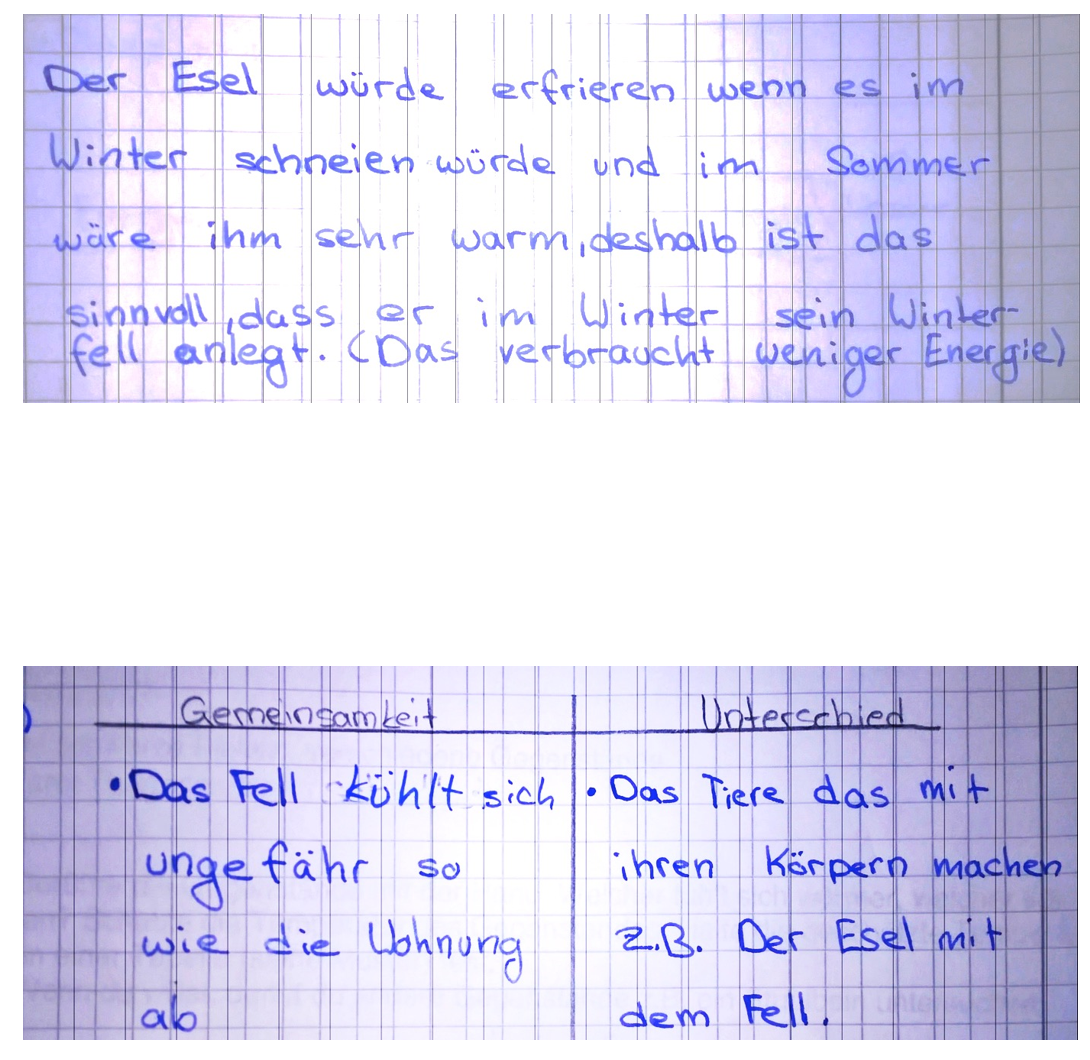 Der Esel würde erfrieren wenn es im
Winter schneien würde und im Sommer
wäre ihm sehr warm, deshalb ist das
sinnvoll, dass er im Winter sein Winter-
fell anlegt. (Das verbraucht weniger Energie)
Gemeinsamkeit
Unterschied
• Das Fell kühlt sich
ungefähr so
wie die Wohnung
ab
• Das Tiere das mit
ihren Körpern machen
z.B. Der Esel mit
dem Fell.